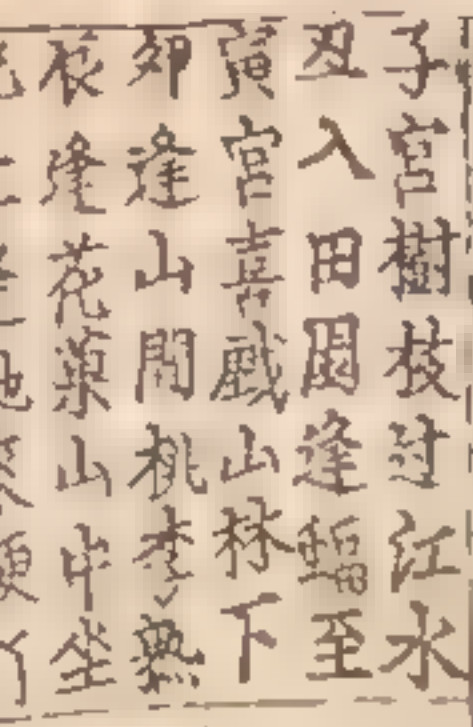 子宮樹枝討江水
丑入田園逢稻至
寅宮喜戲山林下
卯逢山間桃李熟
辰逢花菓山中坐